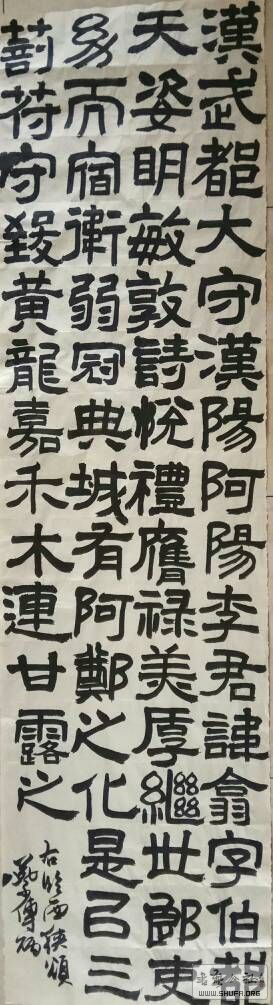 漢武都大守漢陽阿陽李君諱翕字伯都
天姿明敏敦詩悅禮膺祿美厚繼世郎吏
幼而宿衛弱冠典城有阿鄭之化是㠯三
剖苻守致黃龍嘉禾木連甘露之
右臨西狹頌
WWW.SHUFA.ORG